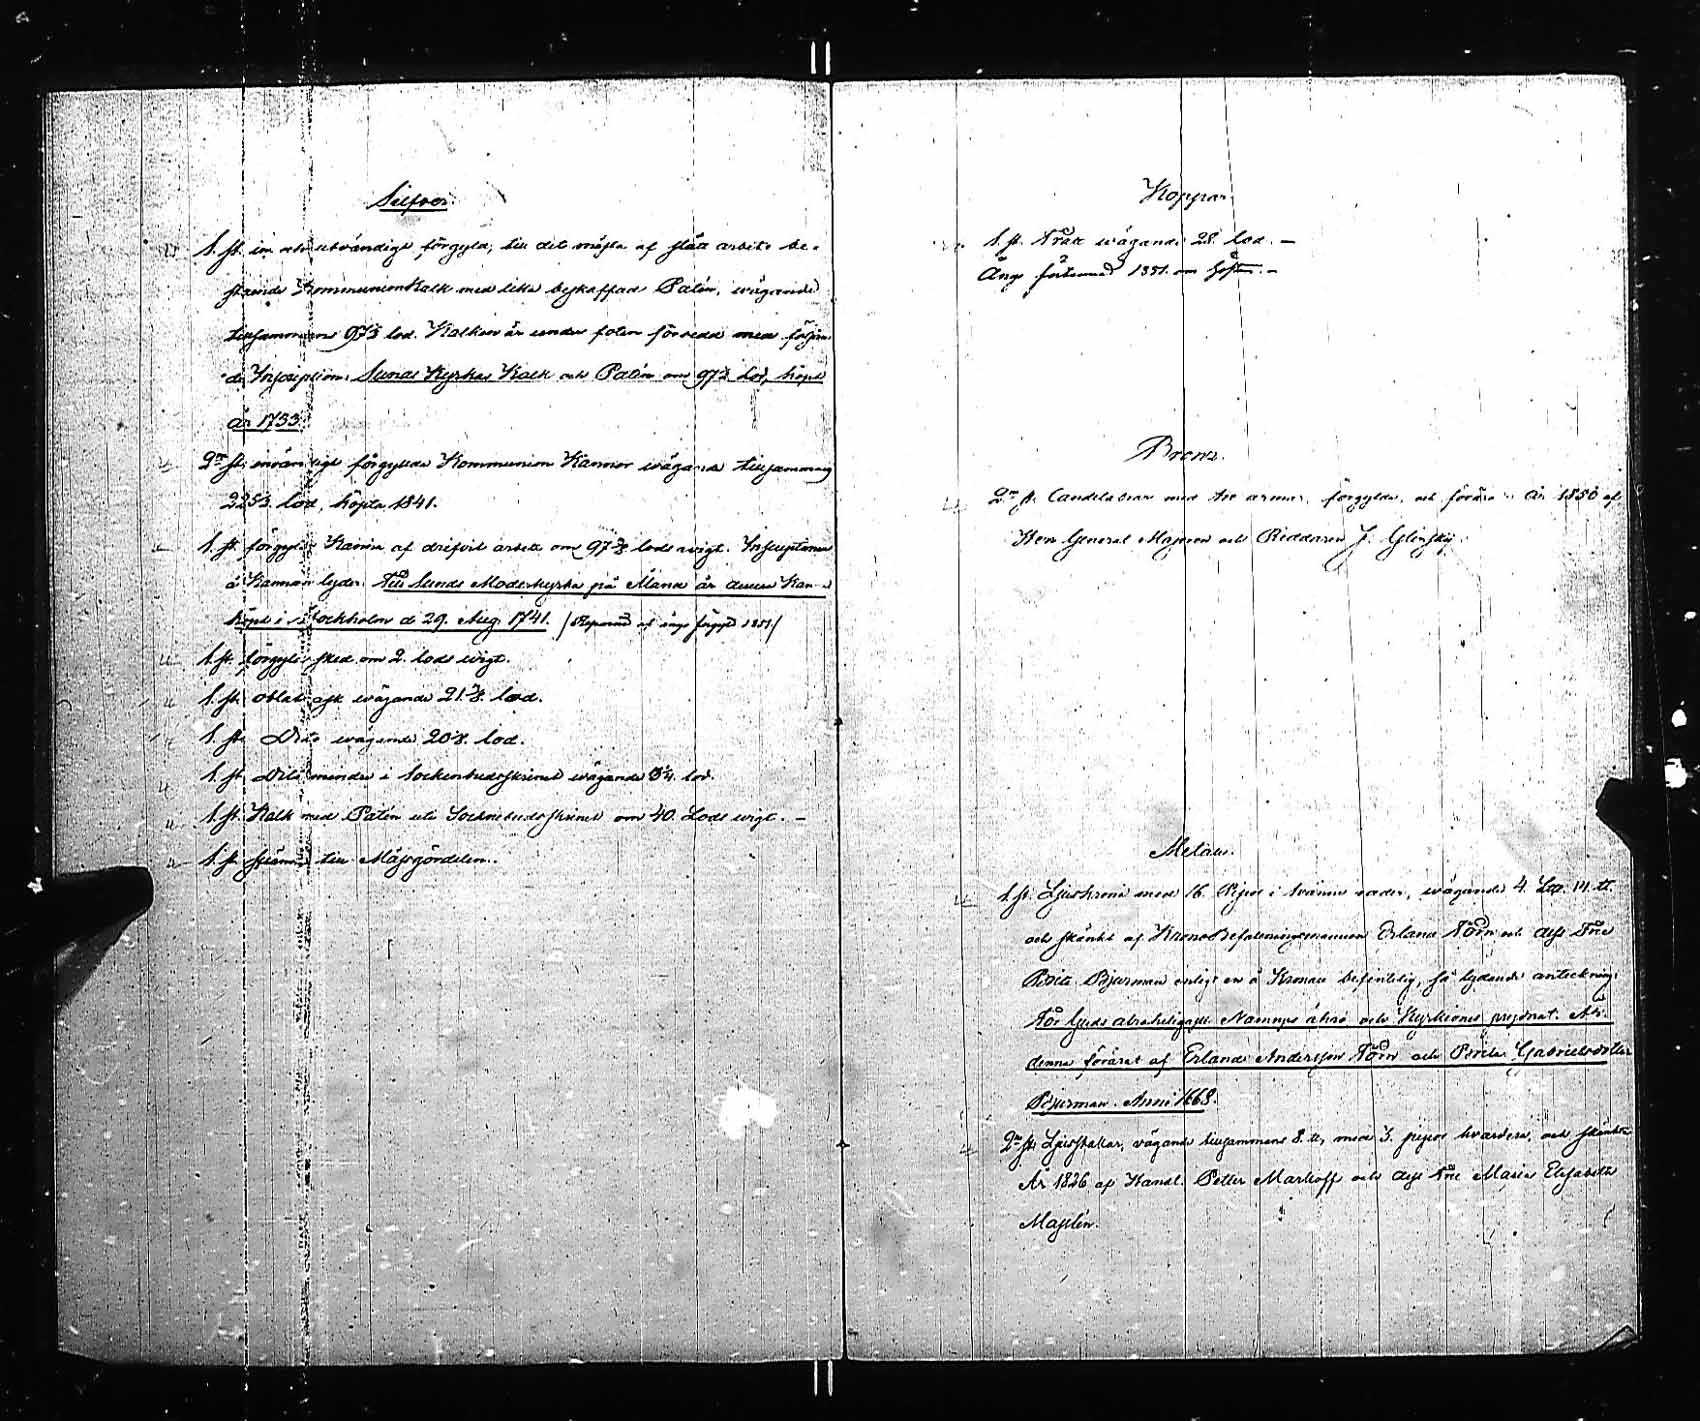 Silfver.
1. st. in och utvändigt förgyld, till det mästa af slätt arbete be-
stående Kommunion Kalk med lika beskaffad Patén, wägande
tillsammans 97½ lod. Kalken är under foten försedd med följan-
de Inscription: Sunds Kyrkas Kalk och Patén om 97½ lod, köpt
år 1753.
2ne st. invändigt förgyllda Kommunion Kannor wägande tillsammans
225½ lod, köpta 1841.
1. st. förgyld Kanna af drifvit arbete om 97⅞ lods wigt. Inscriptionen
å Kannan lyder: Till Sunds Moderkyrka på Åland är denna Kan-
köpt i Stockholm d 29. Aug. 1741. /Reparerad af ånyo förgyld 1851/
1. st. förgyld sked om 2. lods wigt.
1. st. oblat ask wägande 21.⅞. lod.
1. st. Dito wägande 20⅞. lod.
1. st. Dito mindre i Sockenbudsskrinet wägande 3¼. lod.
1. st. Kalk med Patén uti Sockenbudsskrinet om 40. Lods wigt. –
1. st. spänne till Mässgördelen.
Koppar.
1. st. wägande 28. lod. –
Ånyo förtennad 1851.
Bronz.
2ne st. Candelabrar med tre armar, förgylda, och förärade År 1850 af
Herr General Majoren och Riddaren J. Glinsky.
Metall.
1. st. Ljuskrona med 16. Pipor i tvänne rader, wägande 4. L℔. 14 ℔.
och skänkt af KronoBefalningsmannen Erland Törn och dess Fru
Brita Bjurman enligt en å Kronan befintelig, så lydande anteckning:
För Guds alraheligaste Namnps ähro och Kyrkiones prydnat. Är
denna förärat af Erland Andersson Törn och Brita Gabrielsdotter
Bjurman. Anno 1668.
2ne st. Ljusstakar, vägande tillsammans 8. ℔, med 3. pipor hvardera, och skänkta
År 1826 af Handl. Petter Markoff och dess Fru Maria Elisabeth
Masslin.